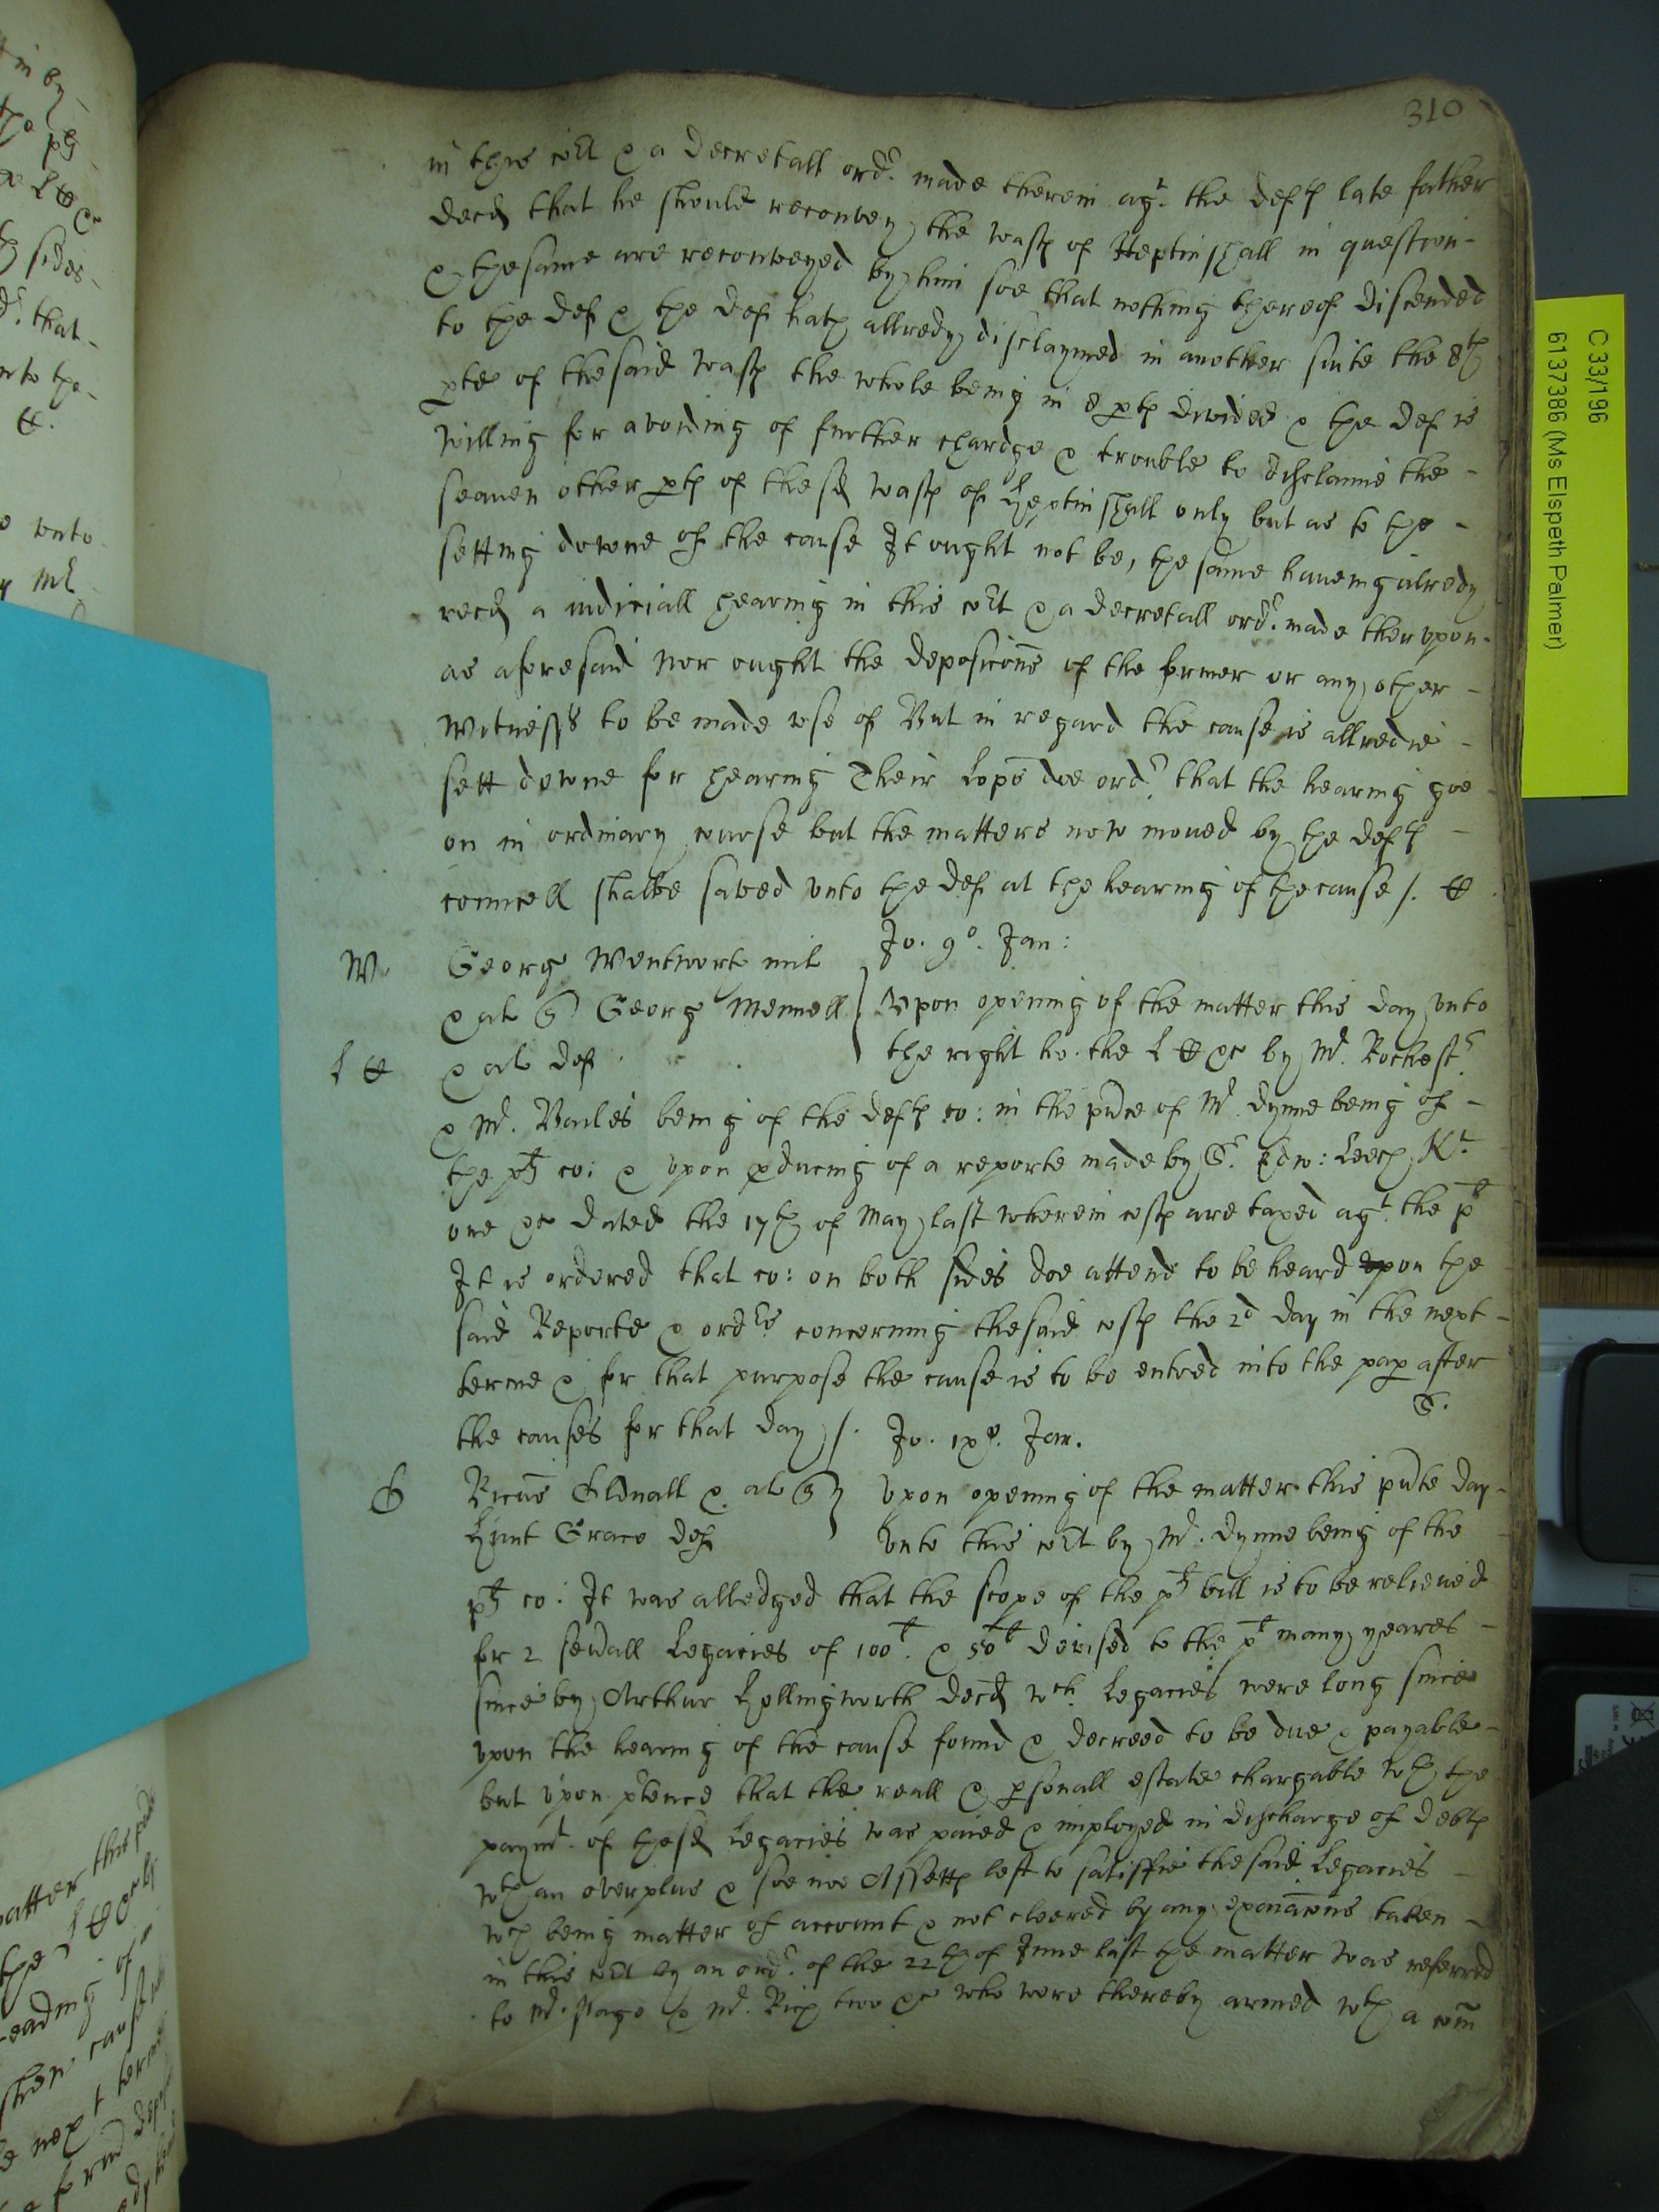 310
in this cort & a decretall ordr. made therein agt. the defts late father
decd that he should reconvey the wasts of Heptinshall in question
& the same are reconveyed by him soe that nothing thereof discended
to the def & the def hath allredy disclaymed in another suite the 8th
pte of the said wasts the whole being in 8 pts divided & the def is
willing for avoiding of further chardge & trouble to disclaime the
seaven other pts of the sd wasts of Heptinshall only but as to the
setting downe of the cause It ought not be, the same haveing alredy
recd a iudiciall hearing in this cort & a decretall ordr. made therupon
as aforesaid nor ought the deposicons of the former or any other
witnesss to be made use of But in regard the cause is allredie
sett downe for hearing Their Lopps doe ordr. that the hearing goe
on in ordinary course but the matters now moved by the defts
councell shalbe saved unto the def at the hearing of the cause /.
Jo. 9o. Jan:
W. George Wentworth mil
& al George Mennell Upon opening of the matter this day unto
& al def the right ho. the L & by Mr. Rochestr.
& Mr. being of the defts co: in the pnce of Mr. Dynne being of
the plts co: & upon pducing of a reporte made by Sr. Edw: Leech Kt.
one &c dated the 17th of May last wherein costs are taxed agt. the plt
It is ordered that co: on both sides doe attend to be heard upon the
said Reporte & ordrs concerning the said costs the 2d day in the next
terme & for that purpose the cause is to be entred into the pap after
the causes for that day /. S.
Jo. 1xo. Jan.
Ricus & al Upon opening of the matter this pnte day
Hunt Grace def Unto this cort by Mr. Dynne being of the
plts co: It was alledged that the scope of the plts bill is to be relieved
for 2 sevall Legacies of 100l. & 50l devised to the plt many yeares
since by Arthur Hollingworth decd wch. Legacies were long since
upon the hearing of the cause found & decreed to be due & payable
but upon ptence that the reall & psonall estate chargable wth the
paymt. of the sd Legacies was paied & imployed in discharge of debts
wth an overplus & soe noe Assetts left to satisfie the said Legacies
wch being matter of account & not cleered by any exaiacons taken
in this cort by an ordr. of the 22th of June last the matter was referred
to Mr. Page & Mr. Rich two &c who were thereby armed wth a com
C 33/196
6137386 (Ms Elspeth Palmer)